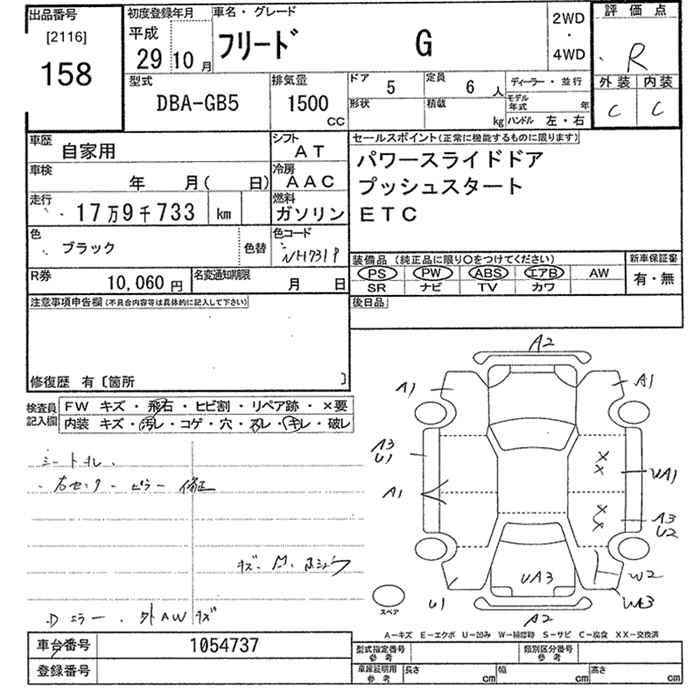 出品番号
[2116]
158
初度登録年月
平成
29年10月
車名・グレード
フリード G
2WD
・
4WD
評価点
R
外装 内装
C C
型式
DBA-GB5
排気量
1500
CC
ドア 5
定員 6人
形状
積載 kg
ディーラー・並行
モデル年式 年
ハンドル 左・右
車歴 自家用
シフト AT
車検 年 月( 日)
冷房 AAC
走行 17万9千733 km
燃料 ガソリン
色 ブラック 色替
色コード NH731P
R券 10,060円
名変通知期限 月 日
セールスポイント(正常に機能するものに限ります)
パワースライドドア
プッシュスタート
ETC
装備品(純正品に限り○をつけてください)
PS PW ABS エアB AW
SR ナビ TV カワ
新車保証書
有・無
後日品
注意事項申告欄(不具合内容等は具体的に記入して下さい)
修復歴 有〔箇所 〕
検査員記入欄
FW キズ・飛石・ヒビ割・リペア跡・×要
内装 キズ・汚レ・コゲ・穴・スレ・キレ・破レ
シートヨレ.
右センターピラー 修正
キズ.
Dミラー.外AWキズ
A2
A1 A1
A3
U1
A1
UA1
A3
U2
UA3
W2
U1
UA3
A2
スペア
A-キズ E-エクボ U-凹み W-補修跡 S-サビ C-腐食 XX-交換済
車台番号 1054737
登録番号
型式指定番号 参考
類別区分番号 参考
車庫証明用 参考
長さ cm 幅 cm 高さ cm